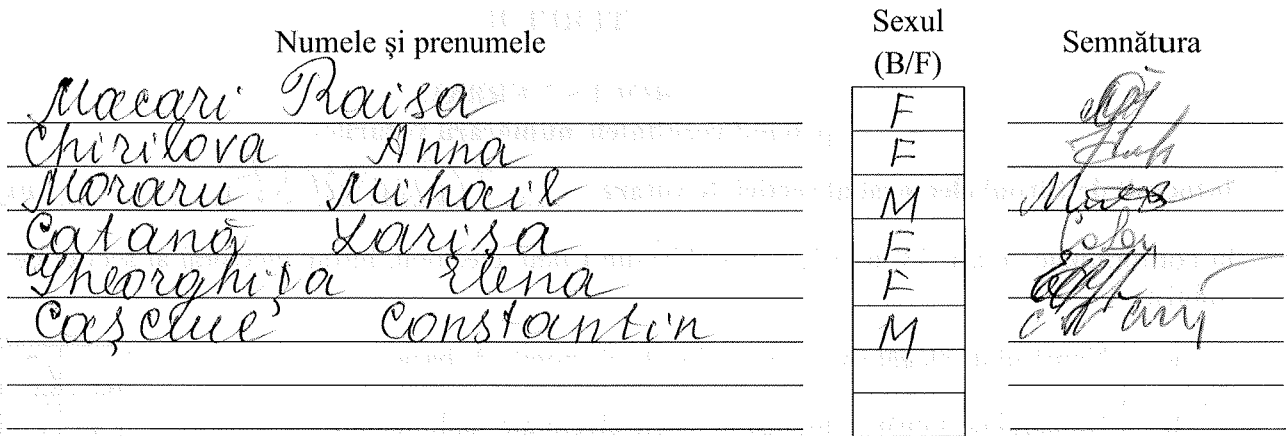 Numele și prenumele Sexul (B/F) Semnătura
Macari Raisa F
Chirilova Anna F
Moraru Mihail M
Catană Larisa F
Gheorghița Elena F
Constantin M